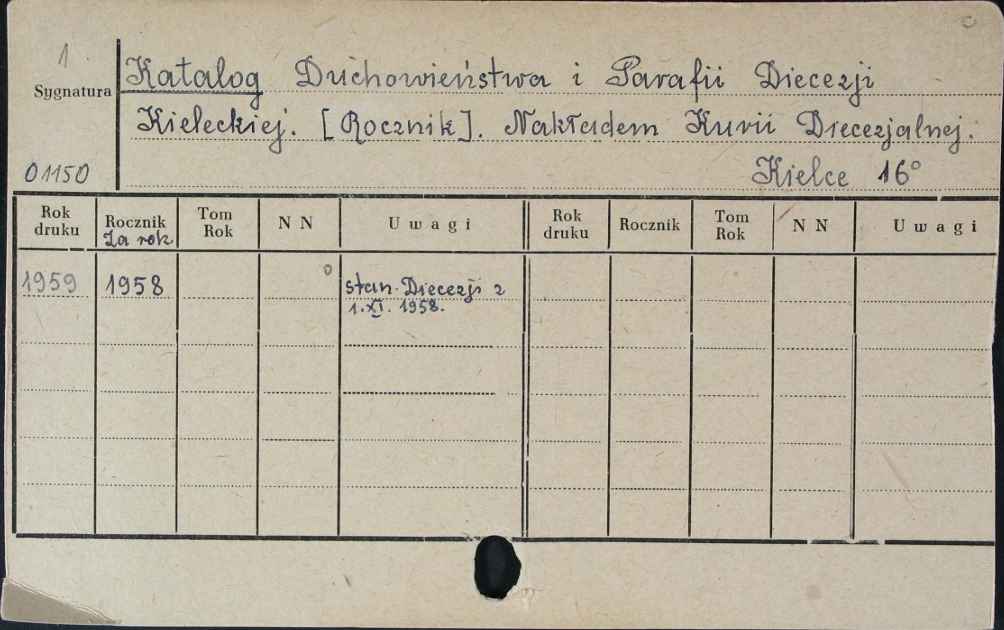 1
Sygnatura
01150
Katalog Duchowieństwa i Parafii Diecezji
Kieleckiej. [Rocznik]. Nakładem Kurii Diecezjalnej.
Kielce 16°
Rok druku
Rocznik
Za rok
Tom Rok
N N
Uwagi
Rok druku
Rocznik
Tom Rok
N N
Uwagi
1959 1958 stan Diecezji z
1.XI. 1958.